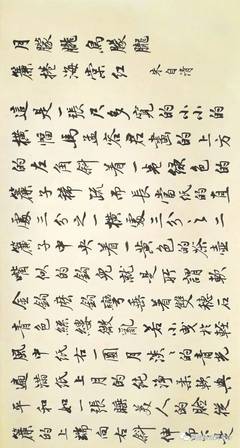 月朦朧鳥朦朧
簾捲海棠紅 朱自清
這是一張尺多寬的小小的
橫幅馬孟容君畫的上方
的左角斜着一卷綠色的
簾子稀疏而長當低的直
處三分之一橫處三分之二
簾子中央着一黃色的茶壺
嘴似的鈎兒就是所謂軟
金鈎麼鈎彎垂着雙穗石
青色絲縷微亂若小曳於輕
風中紙右一圓月淡淡的青光
遍滿紙上月的純淨柔輭與
平和如一張睡美人的臉從
簾的上端向右斜伸而下